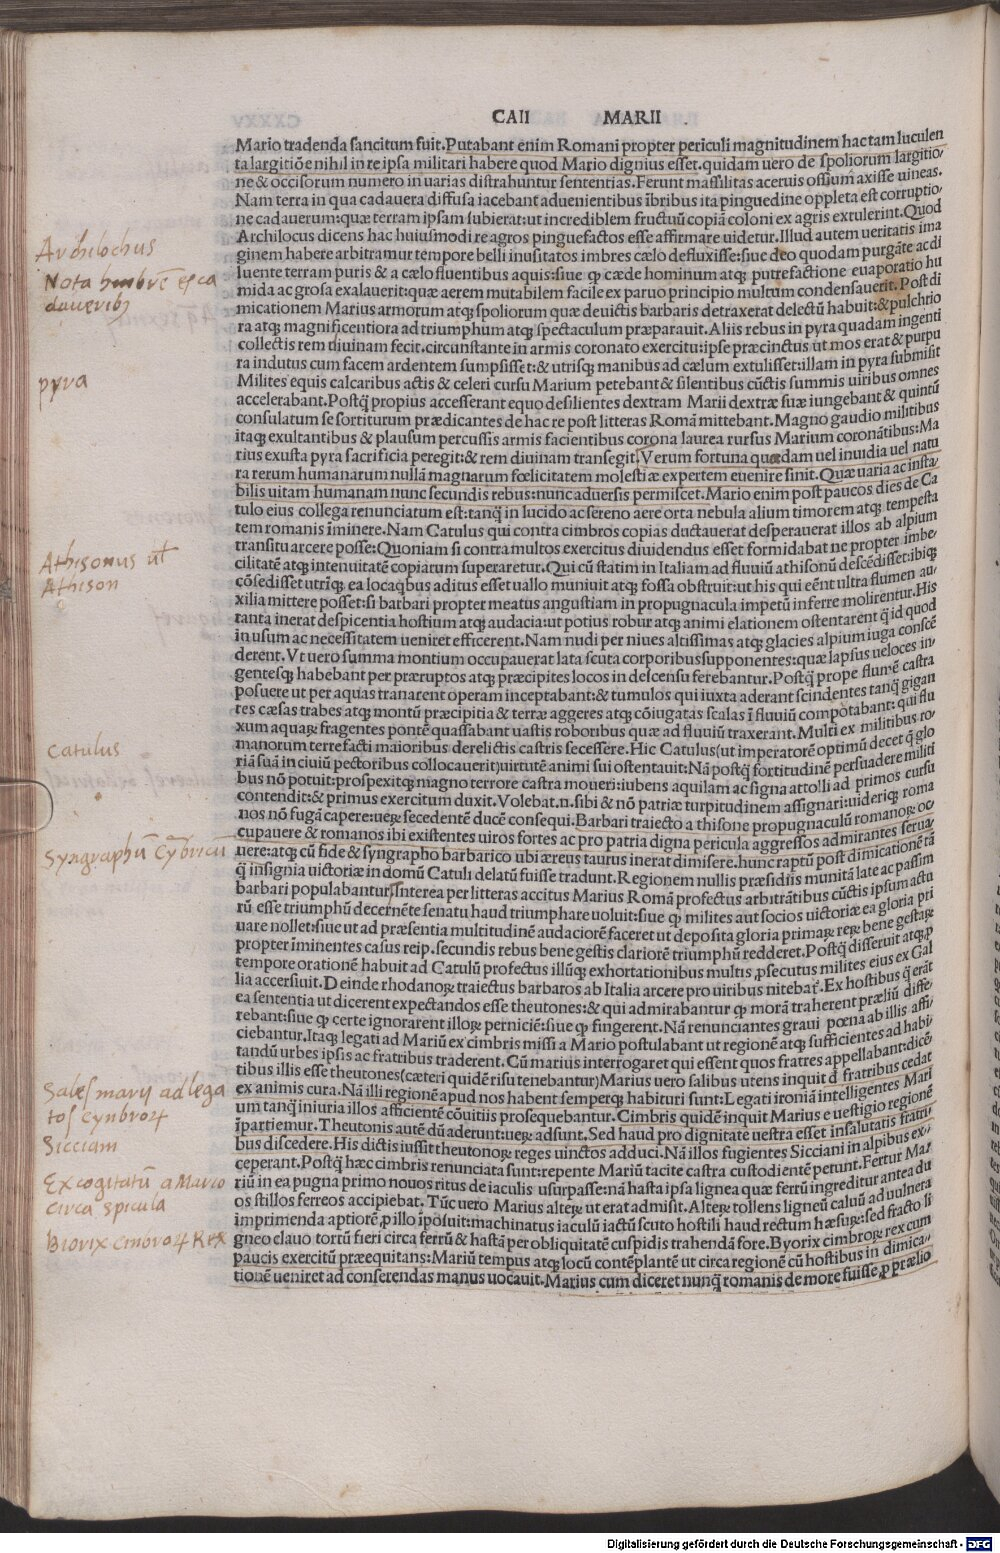 CAII MARII
Mario tradenda sancitum fuit. Putabant enim Romani propter periculi magnitudinem hac tam luculen
ta largitiōe nihil in re ipsa militari habere quod Mario dignius esset. quidam uero de spoliorum largitio/
ne & occisorum numero in uarias distrahuntur sententias. Ferunt massilitas aceruis ossium axisse uineas.
Nam terra in qua cadauera diffusa iacebant aduenientibus ībribus ita pinguedine oppleta est corruptio/
ne cadauerum: quæ terram ipsam subierat: ut incrediblem fructuū copiā coloni ex agris extulerint. Quod
Archilocus dicens hac huiusmodi re agros pinguefactos esse affirmare uidetur. Illud autem ueritatis ima
ginem habere arbitramur tempore belli inusitatos imbres cælo defluxisse: siue deo quodam purgāte ac di
luente terram puris & a cælo fluentibus aquis: siue ꝙ cæde hominum atqꝫ putrefactione euaporatio hu
mida ac grosa exalauerit: quæ aerem mutabilem facile ex paruo principio multum condensauerit. Post di
micationem Marius armorum atqꝫ spoliorum quæ deuictis barbaris detraxerat delectū habuit: & pulchrio
ra atqꝫ magnificentiora ad triumphum atqꝫ spectaculum præparauit. Aliis rebus in pyra quadam ingenti
collectis rem diuinam fecit. circunstante in armis coronato exercitu: ipse præcinctus ut mos erat & purpu
ra indutus cum facem ardentem sumpsisset: & utrisqꝫ manibus ad cælum extulisset: illam in pyra submisit
Milites equis calcaribus actis & celeri cursu Marium petebant & silentibus cūctis summis uiribus omnes
accelerabant. Postq̄ propius accesserant equo desilientes dextram Marii dextræ suæ iungebant & quintū
consulatum se sortiturum prædicantes de hac re post litteras Romā mittebant. Magno gaudio militibus
itaqꝫ exultantibus & plausum percussis armis facientibus corona laurea rursus Marium coronātibus: Ma
rius exusta pyra sacrificia peregit: & rem diuinam transegit. Verum fortuna quædam uel inuidia uel natu
ra rerum humanarum nullā magnarum fœlicitatem molestiæ expertem euenire sinit. Quæ uaria ac insta/
bilis uitam humanam nunc secundis rebus: nunc aduersis permiscet. Mario enim post paucos dies de Ca
tulo eius collega renunciatum est: tanq̄ in lucido ac sereno aere orta nebula alium timorem atqꝫ tempesta
tem romanis īminere. Nam Catulus qui contra cimbros copias ductauerat desperauerat illos ab alpium
transitu arcere posse: Quoniam si contra multos exercitus diuidendus esset formidabat ne propter imbe/
cilitatē atqꝫ intenuitatē copiatum superaretur. Qui cū statim in Italiam ad fluuiū athisonū descēdisset: ibiqꝫ
cōsedisset utrīqꝫ ea locaqꝫbus aditus esset uallo muniuit atqꝫ fossa obstruit: ut his qui eēnt ultra flumen au/
xilia mittere posset: si barbari propter meatus angustiam in propugnacula impetū inferre molirentur. His
tanta inerat despicentia hostium atqꝫ audacia: ut potius robur atqꝫ animi elationem ostentarent q̄ id quod
in usum ac necessitatem ueniret efficerent. Nam nudi per niues altissimas atqꝫ glacies alpium iuga conscē
derent. Vt uero summa montium occupauerat lata scuta corporibus supponentes: quæ lapsus ueloces in/
gentesqꝫ habebant per præruptos atqꝫ præcipites locos in descensu ferebantur. Postq̄ prope flumē castra
posuere ut per aquas tranarent operam inceptabant: & tumulos qui iuxta aderant scindentes tanq̄ gigan
tes cæsas trabes atqꝫ montū præcipitia & terræ aggeres atqꝫ cōiugatas scalas ī fluuiū compōtabant: qui flu
xum aquaꝝ fragentes pontē quassabant uastis roboribus quæ ad fluuiū traxerant. Multi ex militibus ro/
manorum terrefacti maioribus derelictis castris secessere. Hic Catulus (ut imperatorē optimū decet q̄ glo
riā suā in ciuiū pectoribus collocauerit) uirtutē animi sui ostentauit: Nā postq̄ fortitudinē persuadere militi
bus nō potuit: prospexitqꝫ magno terrore castra moueri: iubens aquilam ac signa attolli ad primos cursu
contendit: & primus exercitum duxit. Volebat. n. sibi & nō patriæ turpitudinem assignari: uideriqꝫ roma
nos nō fugā capere: ueꝝ secedentē ducē consequi. Barbari traiecto athisone propugnaculū romanoꝝ oc/
cupauere & romanos ibi existentes uiros fortes ac pro patria digna pericula aggressos admirantes serua/
uere: atqꝫ cū fide & syngrapho barbarico ubi æreus taurus inerat dimisere. hunc raptū post dimicationē tā
q̄ insignia uictoriæ in domū Catuli delatū fuisse tradunt. Regionem nullis præsidiis munitā late ac passim
barbari populabantur. Interea per litteras accitus Marius Romā profectus arbitrātibus cūctis ipsum actu
rū esse triumphū decernēte senatu haud triumphare uoluit: siue ꝙ milites aut socios uictoriæ ea gloria pri
uare nollet: siue ut ad præsentia multitudinē audaciorē faceret ut deposita gloria primaꝝ reꝝ bene gestaꝝ
propter īminentes casus reip. secundis rebus bene gestis clariorē triumphū redderet. Postq̄ disseruit atqꝫ ꝓ
tempore orationē habuit ad Catulū profectus illūqꝫ exhortationibus multis ꝓsecutus milites eius ex Gal
lia accersiuit. Deinde rhodanoꝝ traiectus barbaros ab Italia arcere pro uiribus nitebat̄. Ex hostibus q̄ erāt
ea sententia ut dicerent expectandos esse theutones: & qui admirabantur ꝙ morā traherent præliū diffe/
rebant: siue ꝙ certe ignorarent illoꝝ perniciē: siue ꝙ fingerent. Nā renunciantes graui pœna ab illis affi/
ciebantur. Itaqꝫ legati ad Mariū ex cimbris missi a Mario postulabant ut regionē atqꝫ sufficientes ad habi/
tandū urbes ipsis ac fratribus traderent. Cū marius interrogaret qui essent quos fratres appellabant: dicē/
tibus illis esse theutones (cæteri quidē risu tenebantur) Marius uero salibus utens inquit d̄ fratribus cedat
ex animis cura. Nā illi regionē apud nos habent semperqꝫ habituri sunt: Legati ironiā intelligentes Mari
um tanq̄ iniuria illos afficientē cōuitiis prosequebantur. Cimbris quidē inquit Marius e uestigio regionē
īpartiemur. Theutonis autē dū aderunt: ueꝝ adsunt. Sed haud pro dignitate uestra esset insalutatis fratri/
bus discedere. His dictis iussit theutonoꝝ reges uinctos adduci. Nā illos fugientes Sicciani in alpibus ex/
ceperant. Postq̄ hæc cimbris renunciata sunt: repente Mariū tacite castra custodientē petunt. Fertur Ma/
riū in ea pugna primo nouos ritus de iaculis usurpasse: nā hasta ipsa lignea quæ ferrū ingreditur antea du
os stillos ferreos accipiebat. Tūc uero Marius alteꝝ ut erat admisit. Alteꝝ tollens ligneū caluū ad uulnera
imprimenda aptiorē ꝓ illo īpōsuit: machinatus iaculū iactū scuto hostili haud rectum hæsuꝝ: sed fracto li
gneo clauo tortū fieri circa ferrū & hastā per obliquitatē cuspidis trahendā fore. Byorix cimbroꝝ rex cum
paucis exercitū præequitans: Mariū tempus atqꝫ locū contēplantē ut circa regionē cū hostibus in dimica/
tionē ueniret ad conserendas manus uocauit. Marius cum diceret nunq̄ romanis de more fuisse, ꝓ prælio
Archilochus
Nota
daveribꝫ
pyra
Athisonus ut̄
Athison
Catulus
Syngraphū Cȳbricū
Sales marij ad lega
tos cynbroꝝ
Sicciam
Excogitatū a Mario
circa spicula
Biorix cimbroꝝ Rex
Digitalisierung gefördert durch die Deutsche Forschungsgemeinschaft - DFG